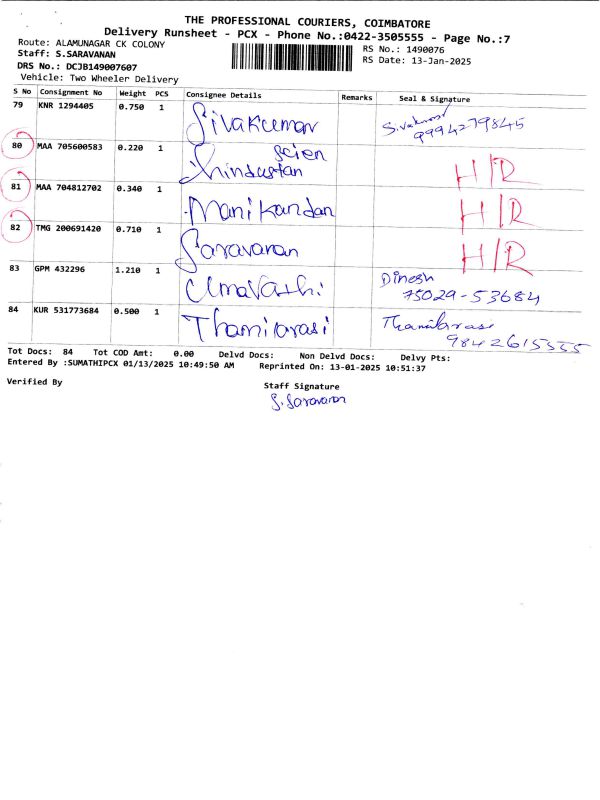 THE PROFESSIONAL COURIERS, COIMBATORE
Delivery Runsheet - PCX - Phone No.:0422-3505555 - Page No.:7
Route: ALAMUNAGAR CK COLONY
RS No.: 1490076
Staff: S.SARAVANAN
RS Date: 13-Jan-2025
DRS No.: DCJB149007607
Vehicle: Two Wheeler Delivery
S No Consignment No Weight PCS Consignee Details Remarks Seal & Signature
79 KNR 1294405 0.750 1 Sivakumar Sivakumar 9994279845
80 MAA 705600583 0.220 1 Hindustan scien H/R
81 MAA 704812702 0.340 1 Manikandan H/R
82 TMG 200691420 0.710 1 Saravanan H/R
83 GPM 432296 1.210 1 Umavathi Dinesh 75029-53684
84 KUR 531773684 0.500 1 Thamilarasi Thamilarasi 9842615555
Tot Docs: 84 Tot COD Amt: 0.00 Delvd Docs: Non Delvd Docs: Delvy Pts:
Entered By :SUMATHIPCX 01/13/2025 10:49:50 AM Reprinted On: 13-01-2025 10:51:37
Verified By
Staff Signature
S. Saravanan